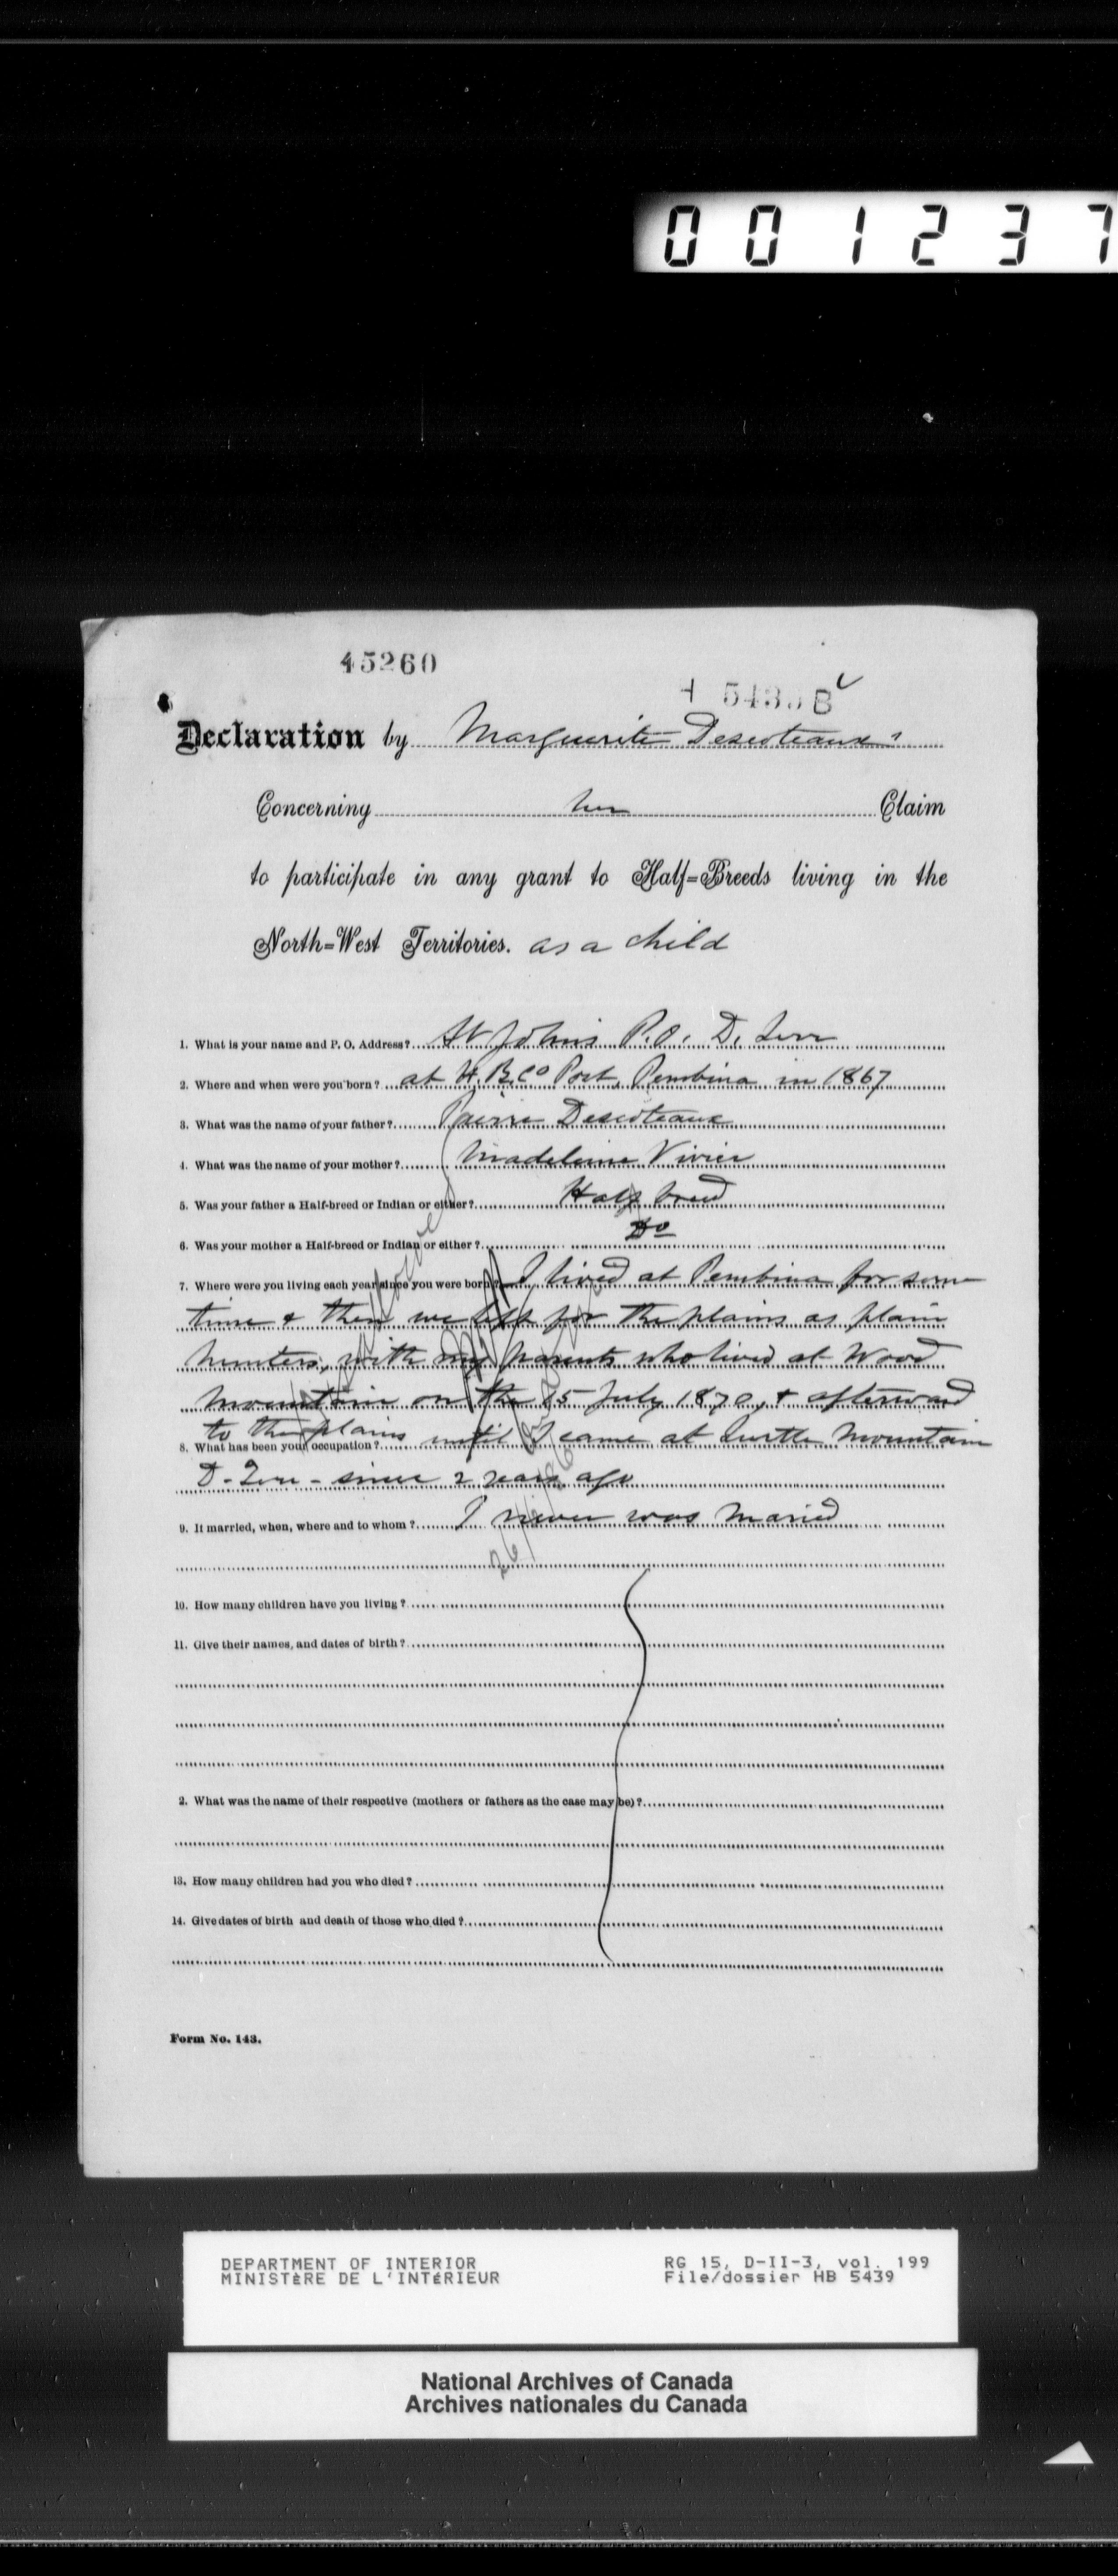 001237
45260
H 543. B
Declaration by Marguerite Descoteaux
Concerning her Claim
to participate in any grant to Half-Breeds living in the
North-West Territories. as a child
1. What is your name and P. O. Address? St Johns P.O. D. Terr
2. Where and when were you born? at H.B.Co Post, Pembina in 1867
3. What was the name of your father? Pierre Descoteaux
4. What was the name of your mother? Madeleine Vivier
5. Was your father a Half-breed or Indian or either? Half breed
6. Was your mother a Half-breed or Indian or either? Do
7. Where were you living each year since you were born? I lived at Pembina for some
time & then we left for the plains as plain
hunters, with my parents who lived at Wood
Mountain on the 15 July 1870, & afterward
to the plains until I came at Turtle Mountain
8. What has been your occupation?
D. Terr - since 2 years ago
9. If married, when, where and to whom? I never was maried
10. How many children have you living?
11. Give their names, and dates of birth?
2. What was the name of their respective (mothers or fathers as the case may be)?
13. How many children had you who died?
14. Give dates of birth and death of those who died?
Form No. 143.
DEPARTMENT OF INTERIOR RG 15, D-II-3, vol. 199
MINISTÈRE DE L'INTÉRIEUR File/dossier HB 5439
National Archives of Canada
Archives nationales du Canada